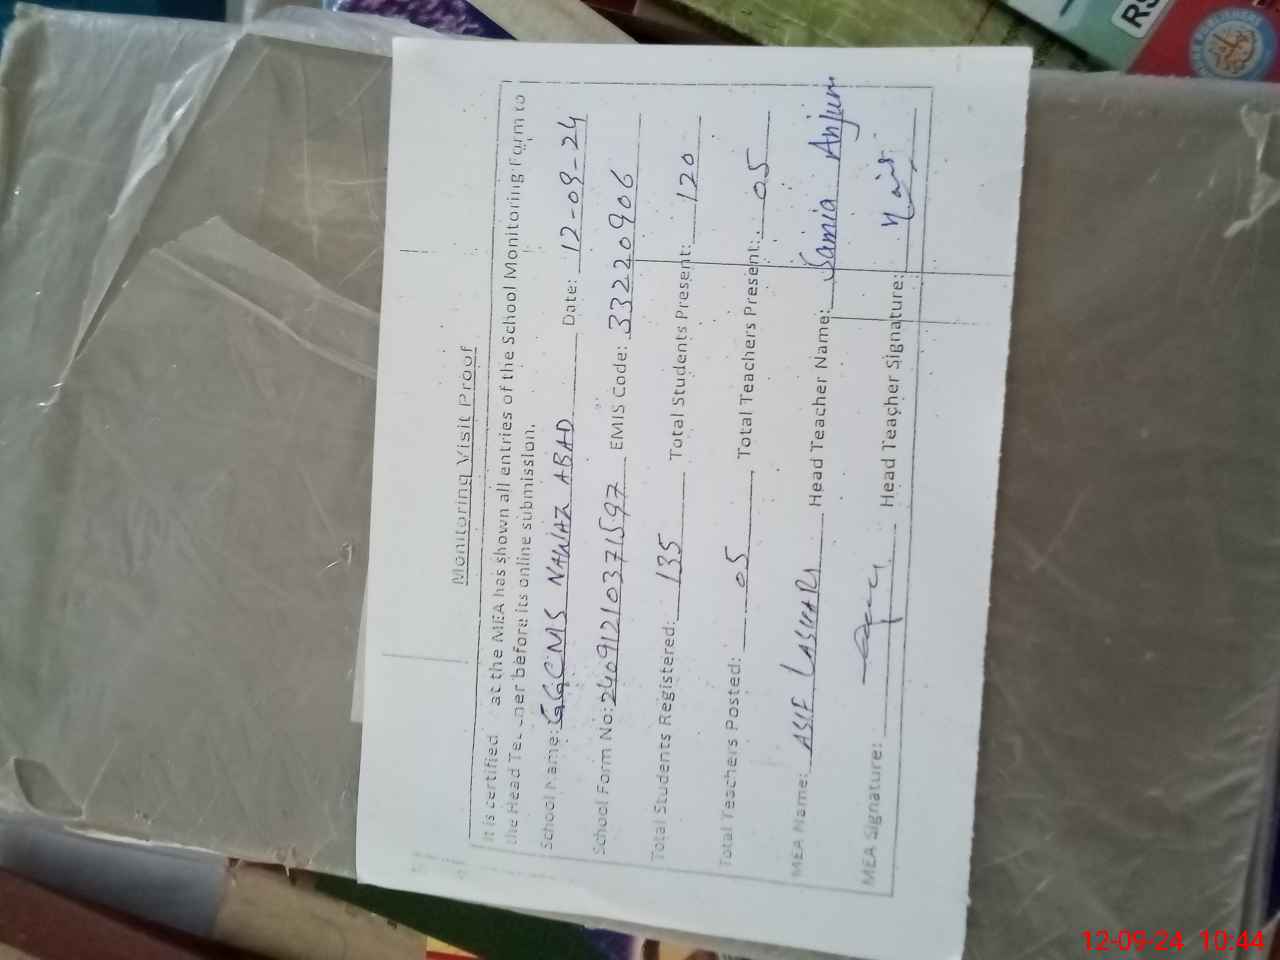 Monitoring Visit Proof
It is certified at the MEA has shown all entries of the School Monitoring Form to
the Head before its online submission.
School Name: GGCMS NAWAZ ABAD Date: 12-09-24
School Form No: 240912103371597 EMIS Code: 33220906
Total Students Registered: 135 Total Students Present: 120
Total Teachers Posted: 05 Total Teachers Present: 05
MEA Name: ASIF LASHARI Head Teacher Name: Samia Anjum
MEA Signature: Head Teacher Signature:
RS
12-09-24 10:44